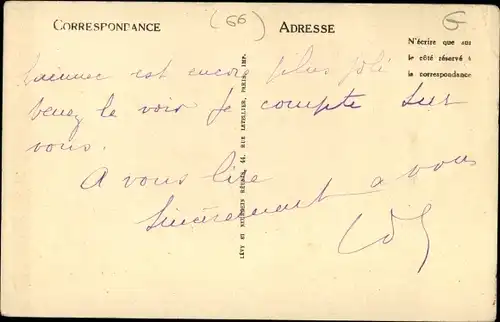 (66)
G
CORRESPONDANCE
ADRESSE
N'écrire que sur
le côté réservé à
la correspondance
est encore plus joli
venez le voir Je compte sur
vous.
A vous lire
Sincèrement a vous
LÉVY ET NEURDEIN RÉUNIS, 44, RUE LETELLIER, PARIS, IMP.